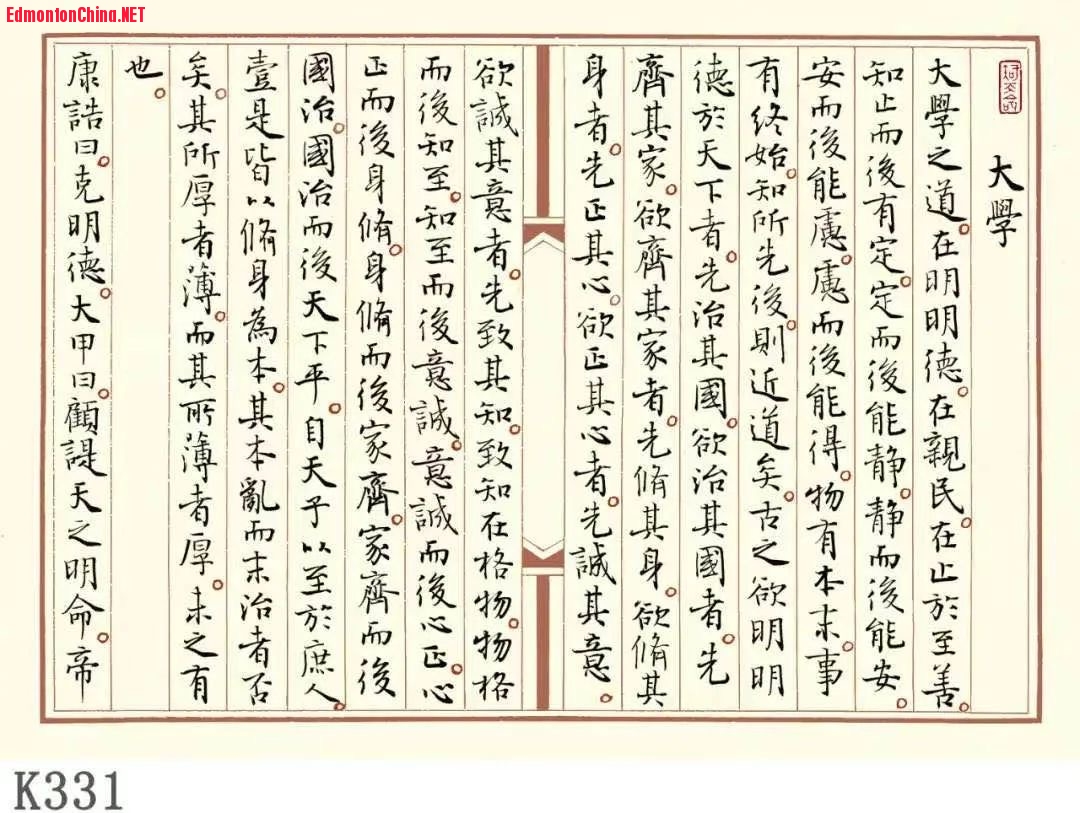 EdmontonChina.NET
大學
大學之道。在明明德。在親民。在止於至善。
知止而後有定。定而後能靜。靜而後能安。
安而後能慮。慮而後能得。物有本末。事
有終始。知所先後。則近道矣。古之欲明明
德於天下者。先治其國。欲治其國者。先
齊其家。欲齊其家者。先脩其身。欲脩其
身者。先正其心。欲正其心者。先誠其意。
欲誠其意者。先致其知。致知在格物。物格
而後知至。知至而後意誠。意誠而後心正。心
正而後身脩。身脩而後家齊。家齊而後
國治。國治而後天下平。自天子以至於庶人。
壹是皆以脩身為本。其本亂而末治者否
矣。其所厚者薄。而其所薄者厚。未之有
也。
康誥曰。克明德。大甲曰。顧諟天之明命。帝
K331